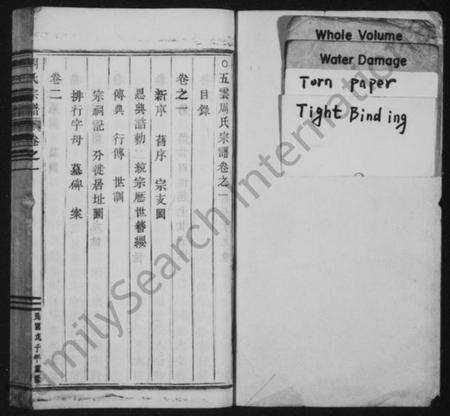 ○五雲周氏宗譜卷之一
目錄
卷之一
新序 舊序 宗支圖
恩典誥勅 統宗歷世簪纓
傳典 行傳 世訓
宗祠記 分徙居址圖
卷二
排行字母 墓碑 案
周氏宗譜 卷之一
民國戊子年重修
Whole Volume
Water Damage
Torn paper
Tight Binding
FamilySearch International